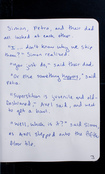 Simon, Petra, and their dad
all looked at each other.
"I... don't know why we ship
them?" Simon realized.
"You just do," said their dad.
"Or else something happens," said
"Superstition is juvenile and old-
fashioned," said, and went
to get a bowl.
"Well, what is it?" said Simon
as Axel stepped onto the
blue tile.
3